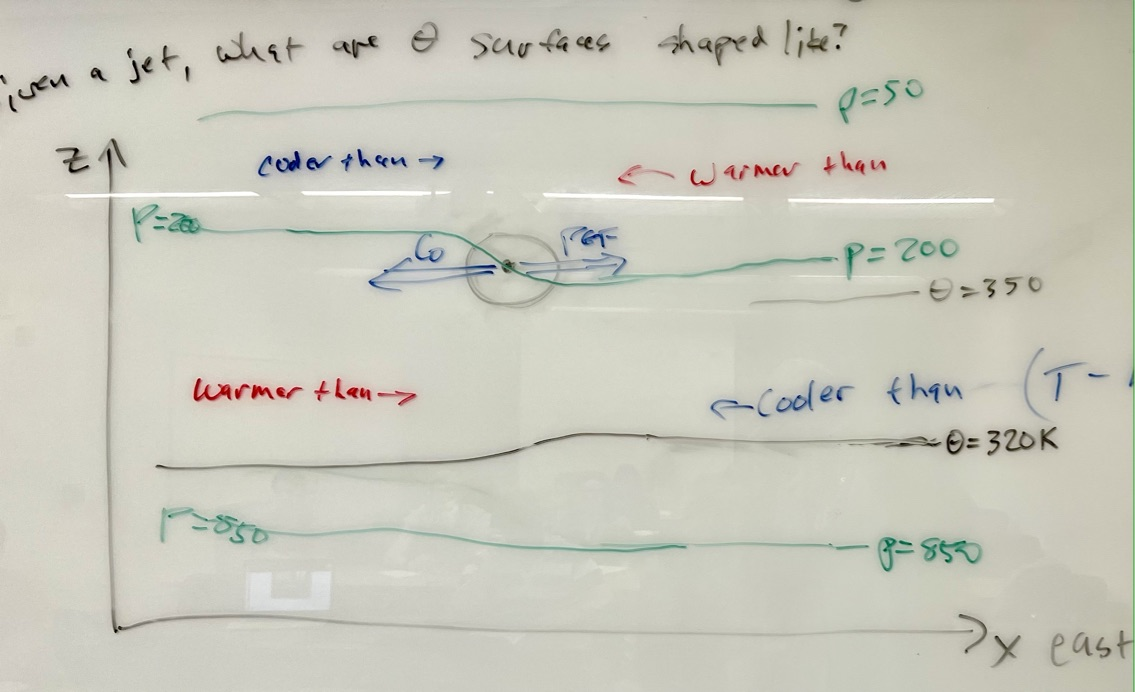 iven a jet, what are θ surfaces shaped like?
p=50
z
cooler than →
← warmer than
P=200
Co
PGF
p=200
θ=350
warmer than →
← cooler than (T-
θ=320K
P=850
p=850
x east